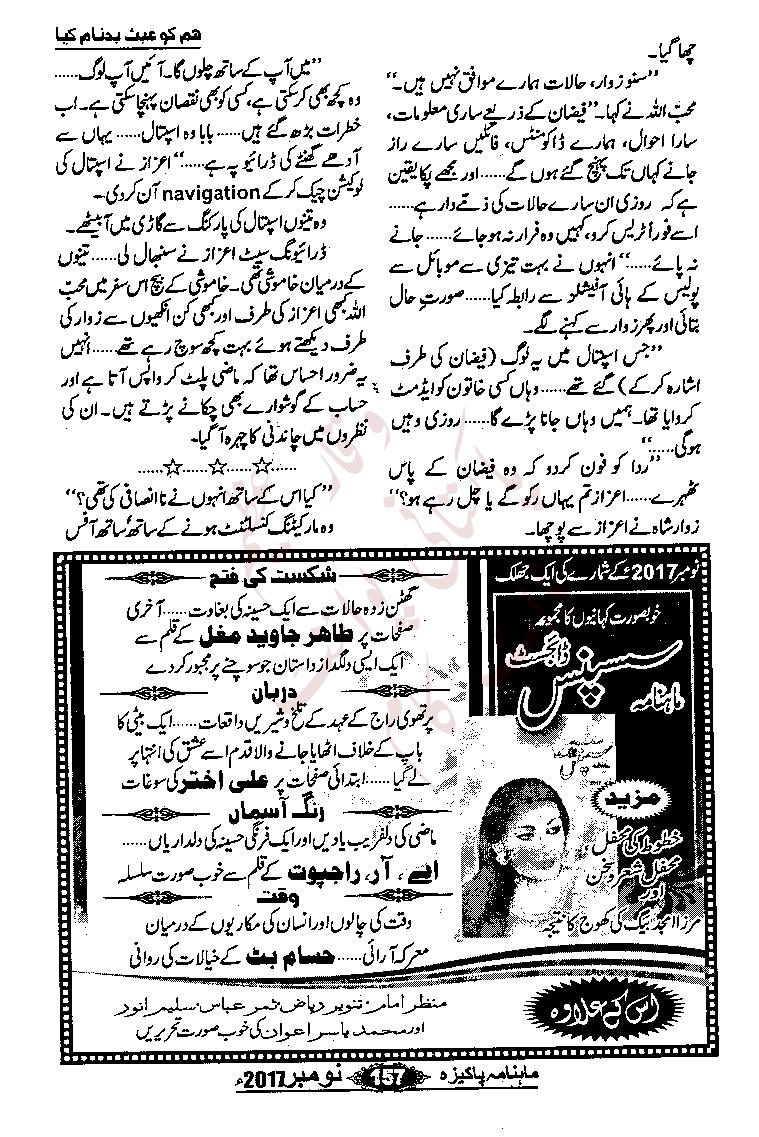 ہم کو عبث بدنام کیا
چھا گیا۔
”سنو زوار، حالات ہمارے موافق نہیں ہیں۔“
محبّ اللہ نے کہا۔ ”فیضان کے ذریعے ساری معلومات،
سارا احوال، ہمارے ڈاکومنٹس، فائلیں سارے راز
جانے کہاں تک پہنچ گئے ہوں گے...... اور مجھے پکا یقین
ہے کہ روزی ان سارے حالات کی ذمّے دار ہے......
اسے فوراً ٹریس کرو، کہیں وہ فرار نہ ہو جائے...... جانے
نہ پائے......“ انہوں نے بہت تیزی سے موبائل سے
پولیس کے ہائی آفیشلز سے رابطہ کیا...... صورتِ حال
بتائی اور پھر زوار سے کہنے لگے۔
”جس اسپتال میں یہ لوگ (فیضان کی طرف
اشارہ کرکے) گئے تھے...... وہاں کسی خاتون کو ایڈمٹ
کروایا تھا۔ ہمیں وہاں جانا پڑے گا...... روزی وہیں
ہوگی......“
”ردا کو فون کردو کہ وہ فیضان کے پاس
ٹھہرے...... اعزاز تم یہاں رکو گے یا چل رہے ہو؟“
زوار شاہ نے اعزاز سے پوچھا۔
”میں آپ کے ساتھ چلوں گا۔ آئیں آپ لوگ......
وہ کچھ بھی کرسکتی ہے، کسی کو بھی نقصان پہنچا سکتی ہے۔ اب
خطرات بڑھ گئے ہیں...... بابا وہ اسپتال...... یہاں سے
آدھے گھنٹے کی ڈرائیو پہ ہے......“ اعزاز نے اسپتال کی
لوکیشن چیک کرکے navigation آن کردی۔
وہ تینوں اسپتال کی پارکنگ سے گاڑی میں آبیٹھے۔
ڈرائیونگ سیٹ اعزاز نے سنبھال لی...... تینوں
کے درمیان خاموشی تھی۔ خاموشی کے بیچ اس سفر میں محبّ
اللہ کبھی اعزاز کی طرف اور کبھی کن انکھیوں سے زوار کی
طرف دیکھتے ہوئے بہت کچھ سوچ رہے تھے...... انہیں
یہ ضرور احساس تھا کہ ماضی پلٹ کر واپس آتا ہے اور
حساب کے گوشوارے بھی چکانے پڑتے ہیں۔ ان کی
نظروں میں چاندنی کا چہرہ آگیا۔
......☆......☆......☆......
”کیا اس کے ساتھ انہوں نے ناانصافی کی تھی؟“
وہ مارکیٹنگ کنسلٹنٹ ہونے کے ساتھ ساتھ آفس
نومبر 2017ء کے شمارے کی ایک جھلک
خوبصورت کہانیوں کا مجموعہ
ماہنامہ سسپنس ڈائجسٹ
سسپنس
مزید
خطوط کی محفل،
محفل شعر و سخن
اور
مرزا امجد بیگ کی کھوج کا نتیجہ
شکست کی فتح
گھٹن زدہ حالات سے ایک حسینہ کی بغاوت...... آخری
صفحات پر طاہر جاوید مغل کے قلم سے
ایک ایسی دلگداز داستان جو سوچنے پر مجبور کردے
دربان
پرتھوی راج کے عہد کے تلخ و شیریں واقعات...... ایک بیٹی کا
باپ کے خلاف اٹھایا جانے والا قدم اسے عشق کی انتہا پر
لے گیا...... ابتدائی صفحات پر علی اختر کی سوغات
رنگ آسماں
ماضی کی دلفریب یادیں اور ایک فرنگی حسینہ کی دلداریاں......
اے، آر، راجپوت کے قلم سے خوب صورت سلسلہ
وقت
وقت کی چالوں اور انسان کی مکاریوں کے درمیان
معرکہ آرائی...... حسام بٹ کے خیالات کی روانی
اس کے علاوہ
منظر امام، تنویر ریاض، ثمر عباس، سلیم انور
اور محمد یاسر اعوان کی خوب صورت تحریریں
ماہنامہ پاکیزہ 157 نومبر 2017ء